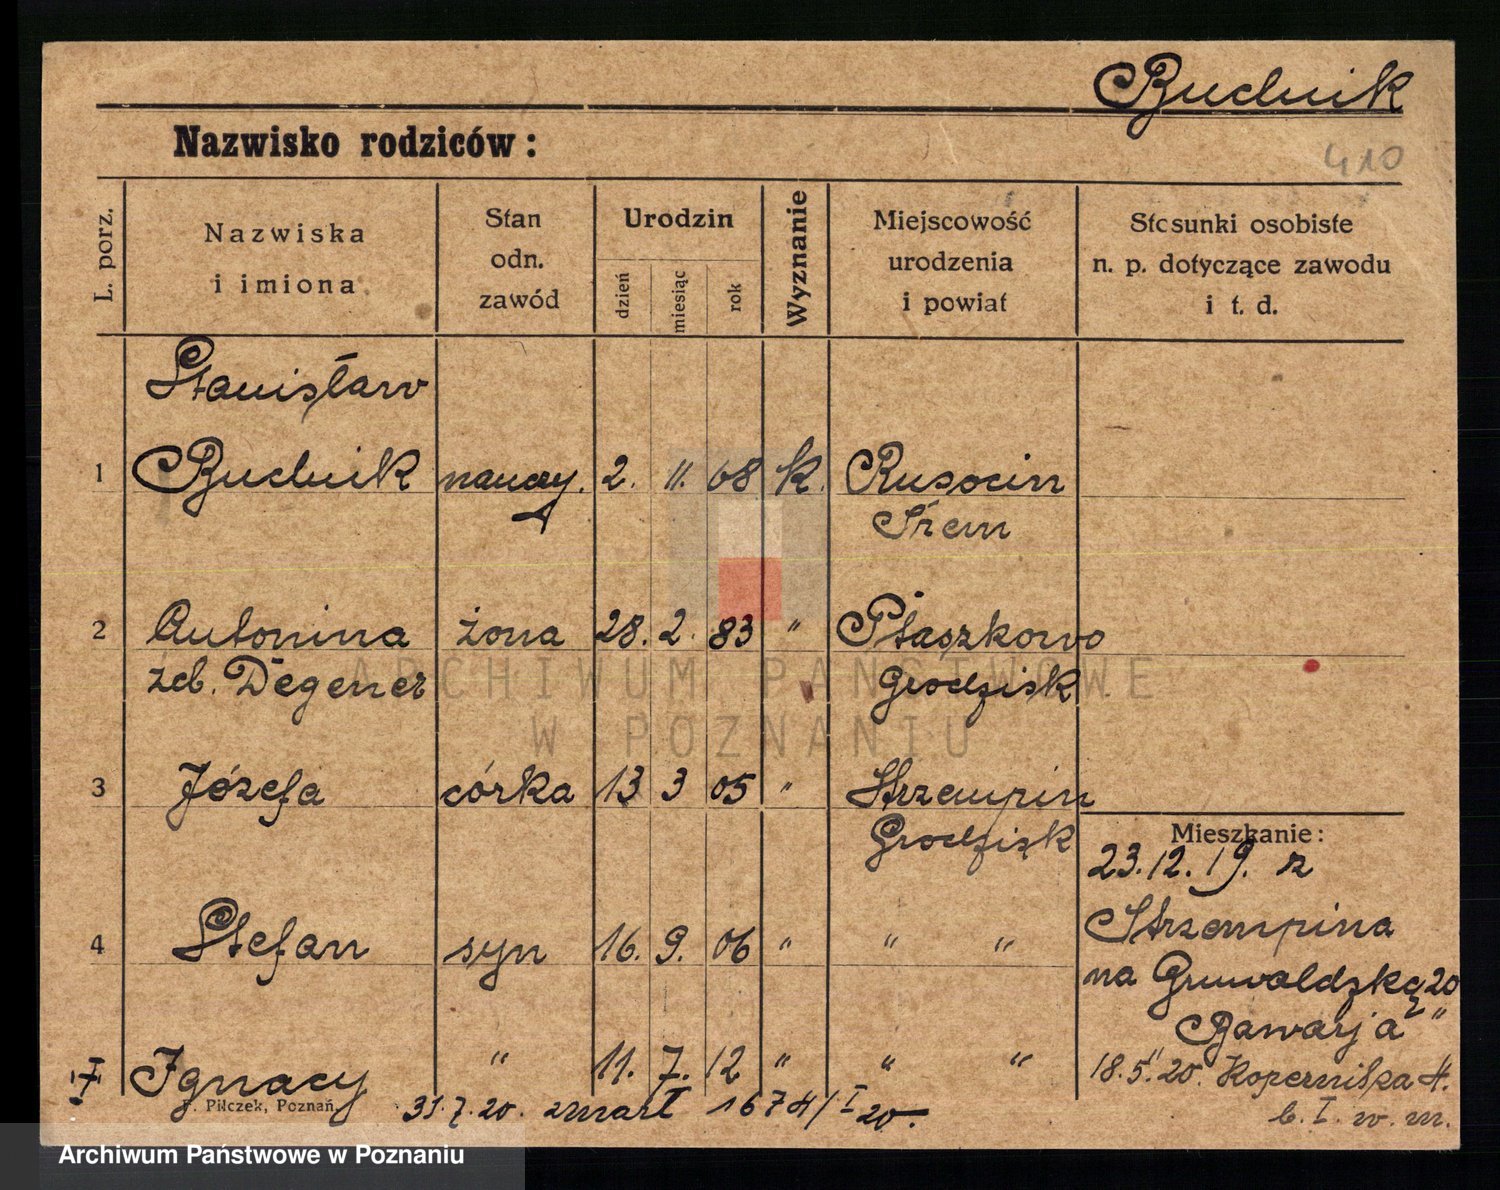 Budnik
410
Nazwisko rodziców:
L. porz.
Nazwiska
i imiona
Stan
odn.
zawód
Urodzin
dzień
miesiąc
rok
Wyznanie
Miejscowość
urodzenia
i powiat
Stosunki osobiste
n. p. dotyczące zawodu
i t. d.
Stanisław
1 Budnik nauczy. 2. 11. 68 k. Rusocin
Śrem
2 Antonina żona 28. 2. 83 " Ptaszkowo
żeb. Degener Grodzisk
ARCHIWUM PAŃSTWOWE
W POZNANIU
3 Józefa córka 13 3 05 " Strzempin
Grodzisk
Mieszkanie:
23.12.19. z
4 Stefan syn 16. 9. 06 " " "
Strzempina
na Grunwaldzką 20
"Bawarja"
Ignacy " 11. 7. 12 " " "
18.5.20. Kopernika 4.
b. I. w. m.
F. Pilczek, Poznań
31.7.20. zmarł 1674/I 20.
Archiwum Państwowe w Poznaniu